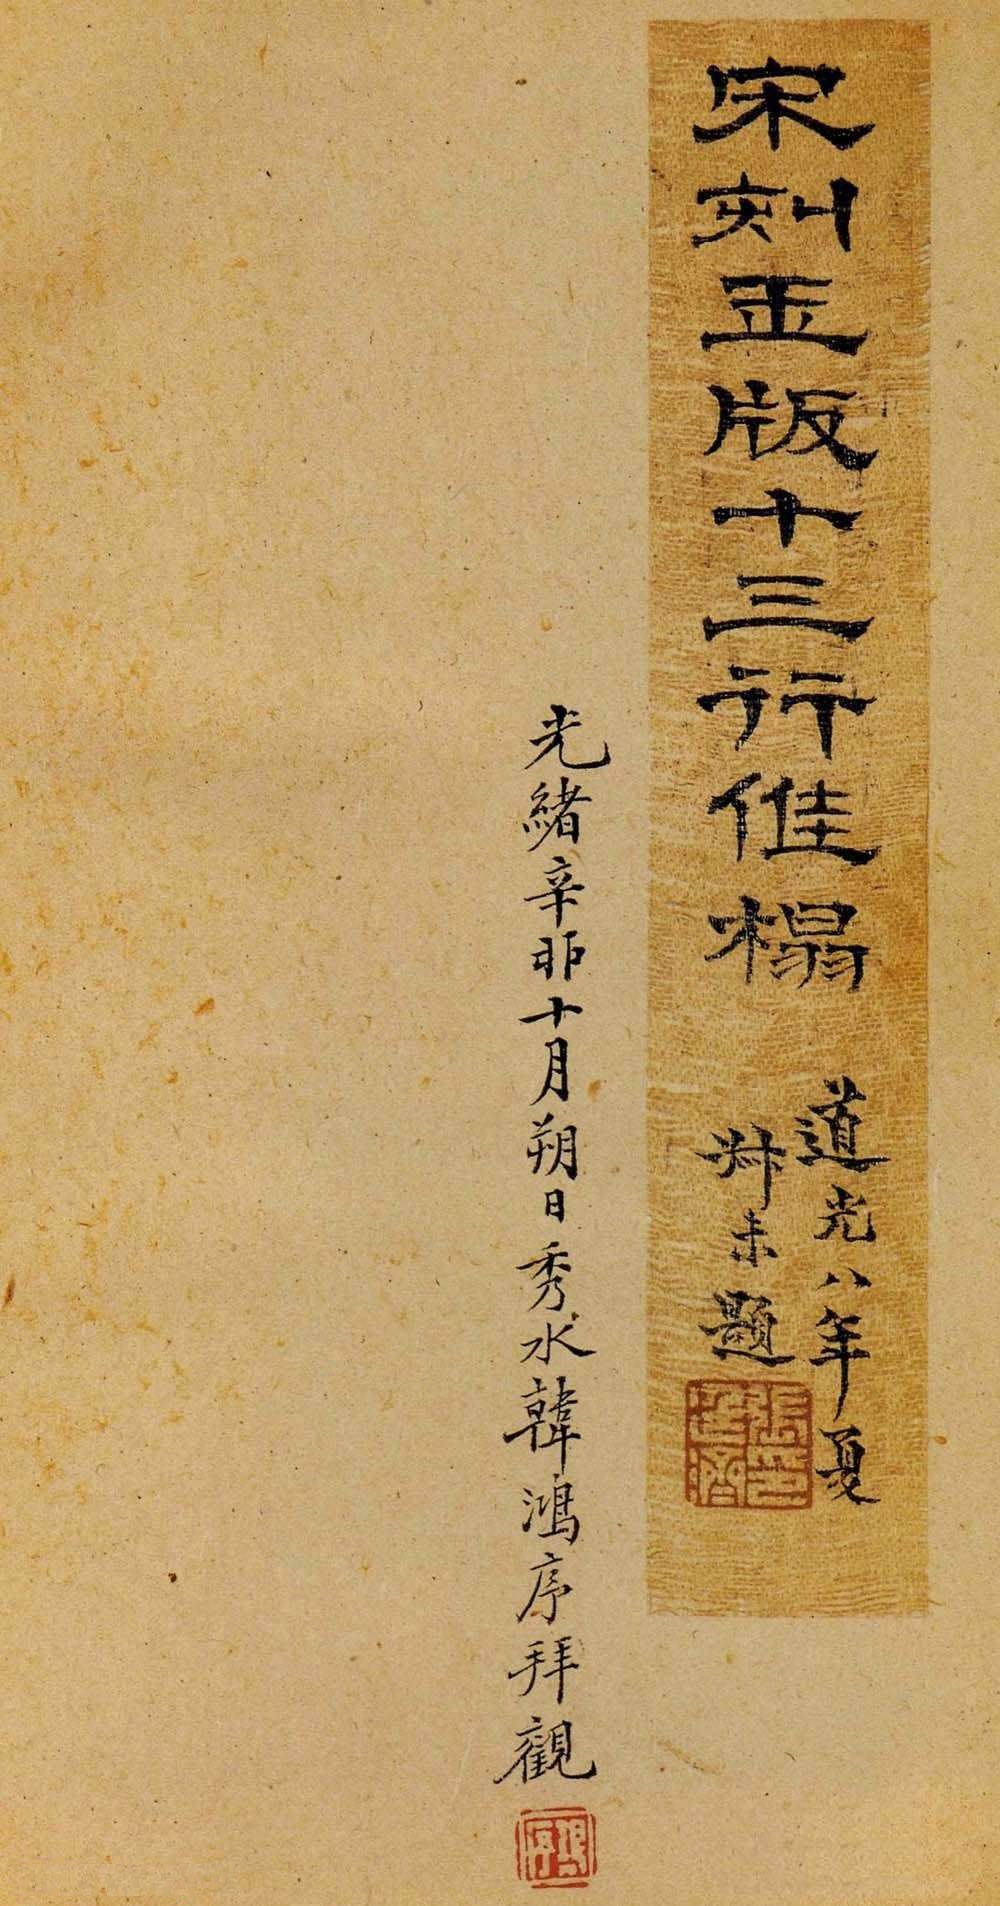 宋刻玉版十三行佳榻
道光八年夏
叔未題
張印廷濟
光緒辛卯十月朔日秀水韓鴻序拜觀
鴻序